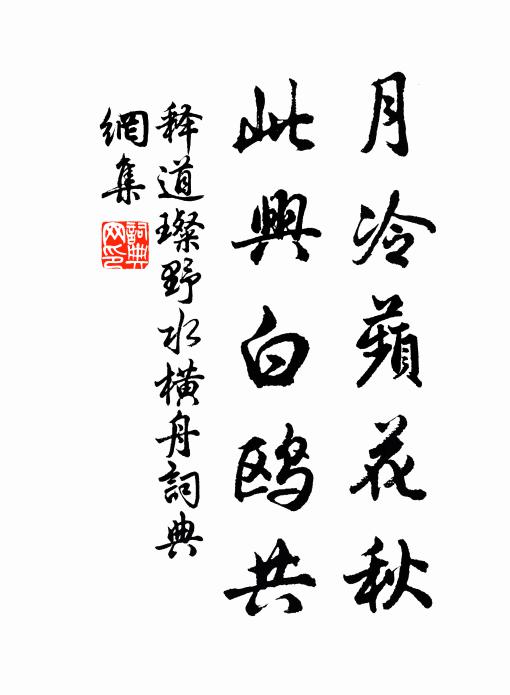 月冷蘋花秋
此興白鸥共
释道璨野水橫舟詞典
網集
詞典网印